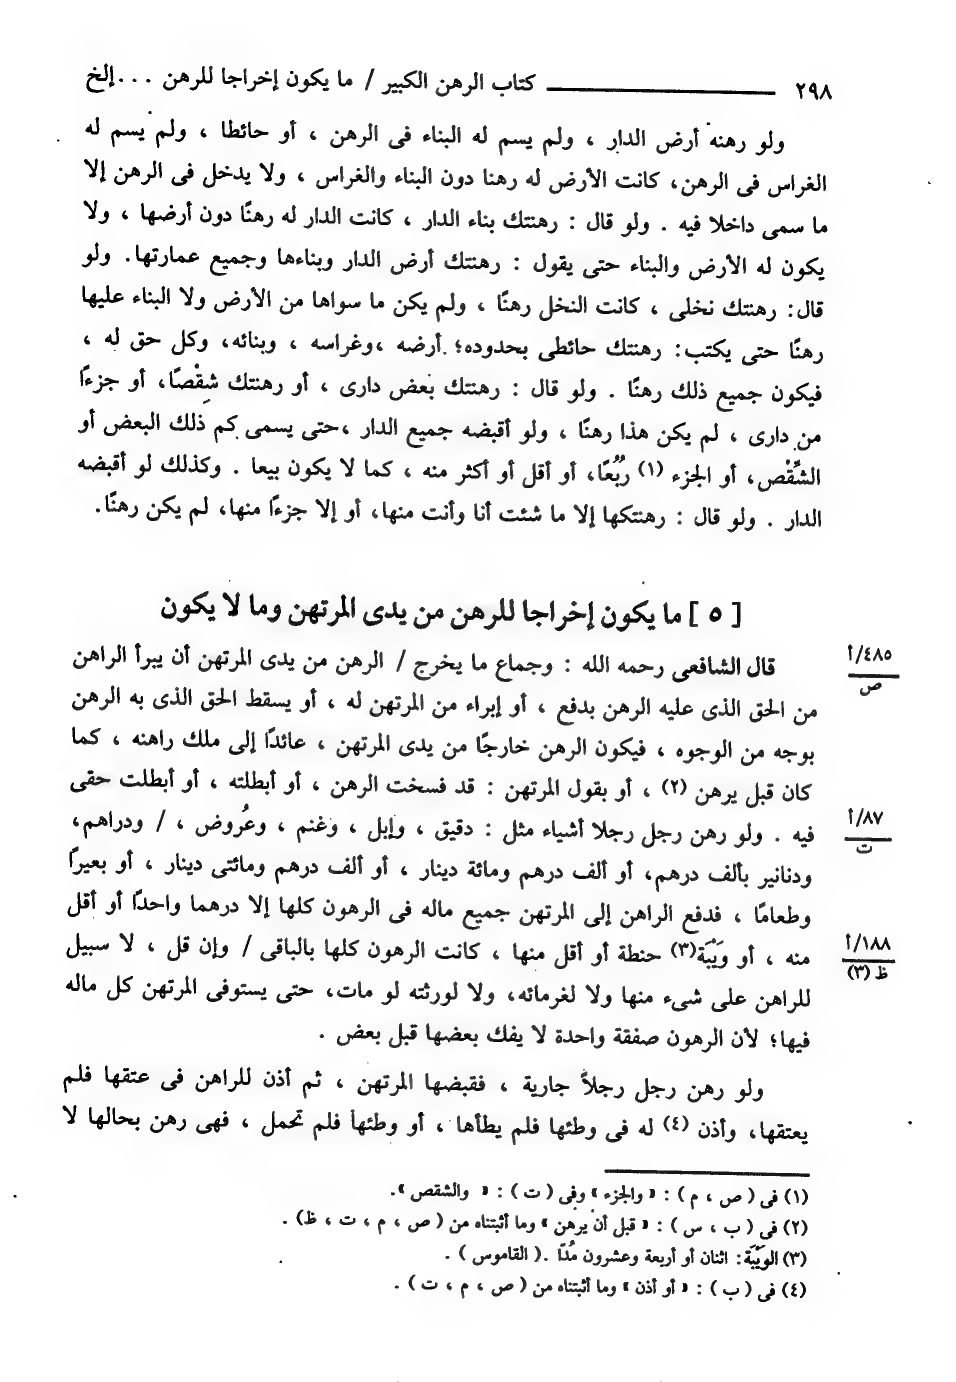 ٢٩٨ كتاب الرهن الكبير / ما يكون إخراجا للرهن ... إلخ
ولو رهنه أرض الدار ، ولم يسم له البناء فى الرهن ، أو حائطا ، ولم يسم له
الغراس فى الرهن، كانت الأرض له رهنا دون البناء والغراس ، ولا يدخل فى الرهن إلا
ما سمى داخلا فيه . ولو قال : رهنتك بناء الدار ، كانت الدار له رهنًا دون أرضها ، ولا
يكون له الأرض والبناء حتى يقول : رهنتك أرض الدار وبناءها وجميع عمارتها. ولو
قال: رهنتك نخلى ، كانت النخل رهنًا ، ولم يكن ما سواها من الأرض ولا البناء عليها
رهنًا حتى يكتب: رهنتك حائطى بحدوده؛ أرضه ،وغراسه ، وبنائه، وكل حق له ،
فيكون جميع ذلك رهنًا . ولو قال : رهنتك بعض دارى ، أو رهنتك شِقْصًا، أو جزءًا
من دارى ، لم يكن هذا رهنًا ، ولو أقبضه جميع الدار ،حتى يسمى كم ذلك البعض أو
الشِّقْص، أو الجزء (١) رُبُعًا، أو أقل أو أكثر منه ، كما لا يكون بيعا . وكذلك لو أقبضه
الدار . ولو قال : رهنتكها إلا ما شئت أنا وأنت منها، أو إلا جزءًا منها، لم يكن رهنًا.
[ ٥ ] ما يكون إخراجا للرهن من يدى المرتهن وما لا يكون
قال الشافعى رحمه الله : وجماع ما يخرج / الرهن من يدى المرتهن أن يبرأ الراهن
٤٨٥/أ
ص
من الحق الذى عليه الرهن بدفع ، أو إبراء من المرتهن له ، أو يسقط الحق الذى به الرهن
بوجه من الوجوه ، فيكون الرهن خارجًا من يدى المرتهن ، عائدًا إلى ملك راهنه ، كما
كان قبل يرهن (٢) ، أو بقول المرتهن : قد فسخت الرهن ، أو أبطلته ، أو أبطلت حقى
فيه . ولو رهن رجل رجلا أشياء مثل : دقيق ، وإبل ، وغنم ، وعُروض ، / ودراهم،
٨٧/أ
ت
ودنانير بألف درهم، أو ألف درهم ومائة دينار ، أو ألف درهم ومائتى دينار ، أو بعيرًا
وطعامًا ، فدفع الراهن إلى المرتهن جميع ماله فى الرهون كلها إلا درهما واحدًا أو أقل
منه ، أو وَيْبَة(٣) حنطة أو أقل منها ، كانت الرهون كلها بالباقى / وإن قل ، لا سبيل
١٨٨/أ
ظ (٣)
للراهن على شىء منها ولا لغرمائه، ولا لورثته لو مات، حتى يستوفى المرتهن كل ماله
فيها؛ لأن الرهون صفقة واحدة لا يفك بعضها قبل بعض .
ولو رهن رجل رجلاً جارية ، فقبضها المرتهن ، ثم أذن للراهن فى عتقها فلم
يعتقها، وأذن (٤) له فى وطئها فلم يطأها ، أو وطئها فلم تحمل ، فهى رهن بحالها لا
(١) فى ( ص ، م ) : « والجزء » وفى ( ت ) : « والشقص ».
(٢) فى ( ب ، س ) : « قبل أن يرهن » وما أثبتناه من ( ص ، م ، ت ، ظ) .
(٣) الوَيْبَة: اثنان أو أربعة وعشرون مُدّا .( القاموس ) .
(٤) فى ( ب ) : « أو أذن » وما أثبتناه من ( ص ، م ، ت ) .